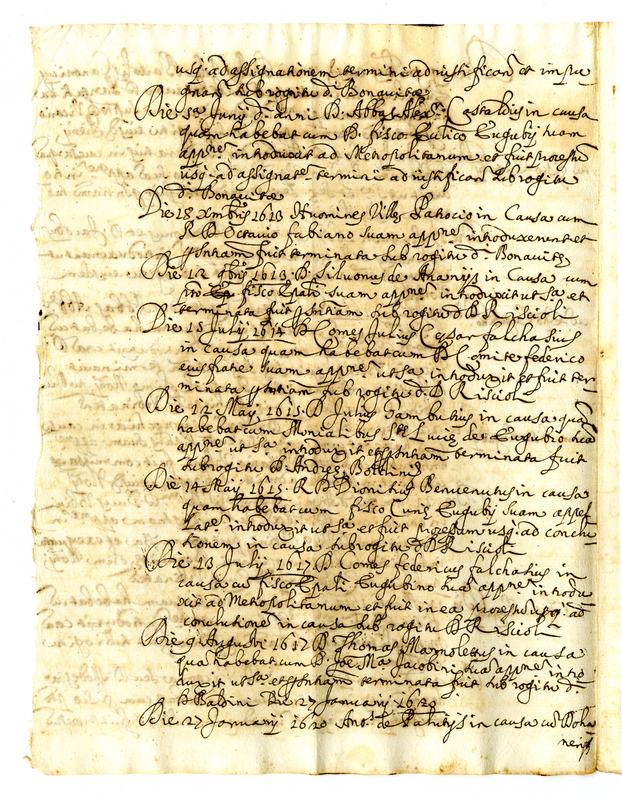 usq; ad assignationem termini ad iustifican et impu
gnan sub rogitu D. Bonauitæ
Die sa Junij d. anni D. Abbas Alexr. Castaldus in causa
quam habebat cum R. fisco Eugubij suam
appne introduxit ad Metropolitanum et fuit processu
usq; ad assignatε termini ad iustifican sub rogitu
d. Bonauitæ
Die 18 Xmbris 1613 Homines Villæ in Causa cum
R D Octavio Fabiano suam appne introduxerunt et
sntiam fuit terminata sub rogitu D. Bonauitæ
Die 12 1613 D. de Ananijs in Causa cum
fisco Epali suam appne introduxit ut sa et
terminata fuit sntiam sub rogitu D D Riscioli
Die 15 Julij 1614 D Comes Julius Cesar falchatius
in causa quam habebat cum D Comite federico
suam appne ut sa introduxit et fuit ter
minata sntiam sub rogitu d. D Riscioli
Die 12 Maij 1615 D Julius Tambutius in causa qua
habebat cum Monialibus Stæ Luciæ de Eugubio sua
appne ut sa introduxit et sntiam terminata fuit
sub rogitu D. Andreæ Bottini
Die 14 Maij 1615 R D Dionitius Benuenutus in causa
quam habebat cum fisco Curiæ Eugubij suam appel
latε introduxit ut sa et fuit usq; ad conclu
tionem in causa sub rogitu d D Riscioli
Die 13 Julij 1617 D Comes federicus falchatius in
causa cu fisco Epali Eugubino sua appne introdu
xit ad Metropolitanum et fuit in ea processu usq; ad
conclutione in causa sub rogitu D Riscioli
Die 9 Augusti 1617 D Thomas in causa
qua habebat cum D. Joe Ma Jacobini sua appne intro
duxit ut sa et sntiam terminata fuit sub rogitu d.
D Baldini Die 27 Januarij 1620
Die 27 Januarij 1620 Ants. de in causa cu